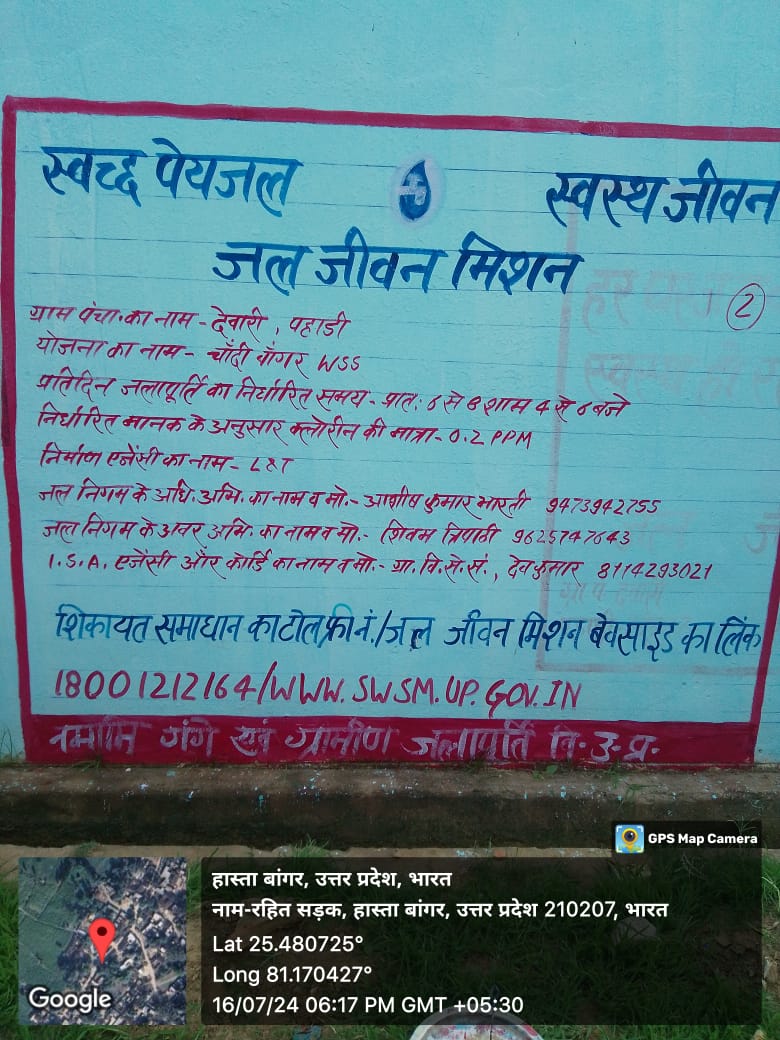 स्वच्छ पेयजल
स्वस्थ जीवन
जल जीवन मिशन
2
ग्राम पंचा. का नाम - देवारी, पहाडी
योजना का नाम - चाँदी बाँगर WSS
प्रतिदिन जलापूर्ति का निर्धारित समय - प्रात: 6 से 8 शाम 4 से 6 बजे
निर्धारित मानक के अनुसार क्लोरीन की मात्रा - 0.2 PPM
निर्माण एजेंसी का नाम - L&T
जल निगम के अधि. अभि. का नाम व मो. - आशीष कुमार भारती 9473942755
जल निगम के अवर अभि. का नाम व मो. - शिवम त्रिपाठी 9625747643
I.S.A. एजेंसी और कोर्डि का नाम व मो. - ग्रा. वि. से. सं., देव कुमार 8114293021
शिकायत समाधान का टोल फ्री नं./जल जीवन मिशन बेवसाइड का लिंक
18001212164/WWW.SWSM.UP.GOV.IN
नमामि गंगे एवं ग्रामीण जलापूर्ति वि. उ. प्र.
GPS Map Camera
हास्ता बांगर, उत्तर प्रदेश, भारत
नाम-रहित सड़क, हास्ता बांगर, उत्तर प्रदेश 210207, भारत
Lat 25.480725°
Long 81.170427°
16/07/24 06:17 PM GMT +05:30
Google